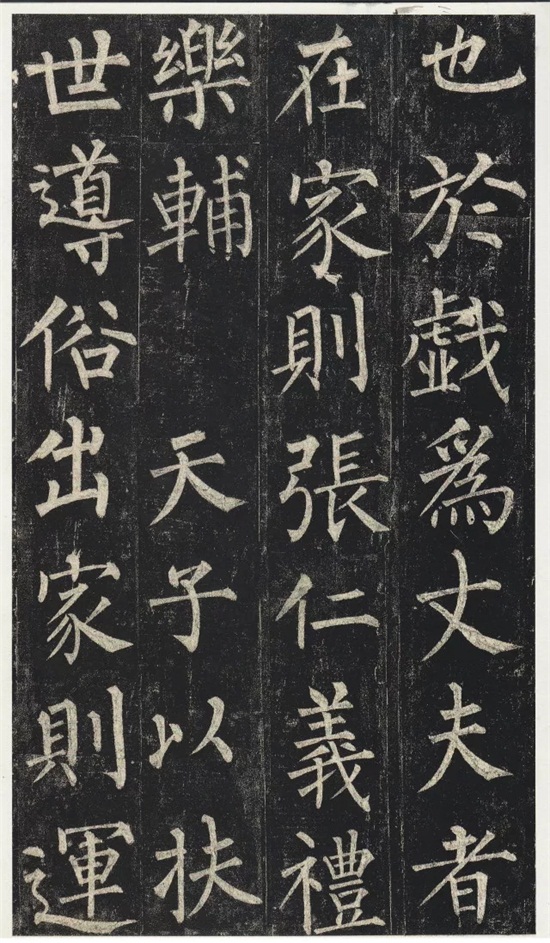 也於戲爲丈夫者
在家則張仁義禮
樂輔天子以扶
世導俗出家則運